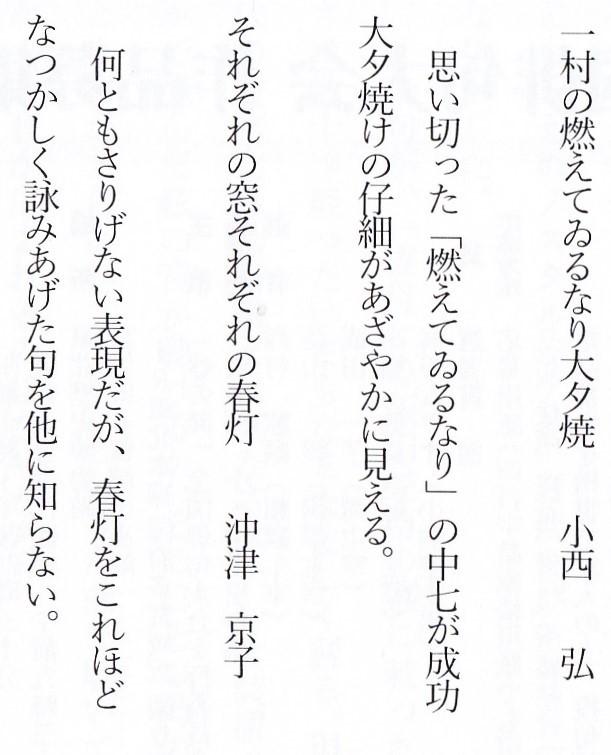 一村の燃えてゐるなり大夕焼　　小西　　弘
思い切った「燃えてゐるなり」の中七が成功
大夕焼けの仔細があざやかに見える。
それぞれの窓それぞれの春灯　　沖津　京子
何ともさりげない表現だが、春灯をこれほど
なつかしく詠みあげた句を他に知らない。